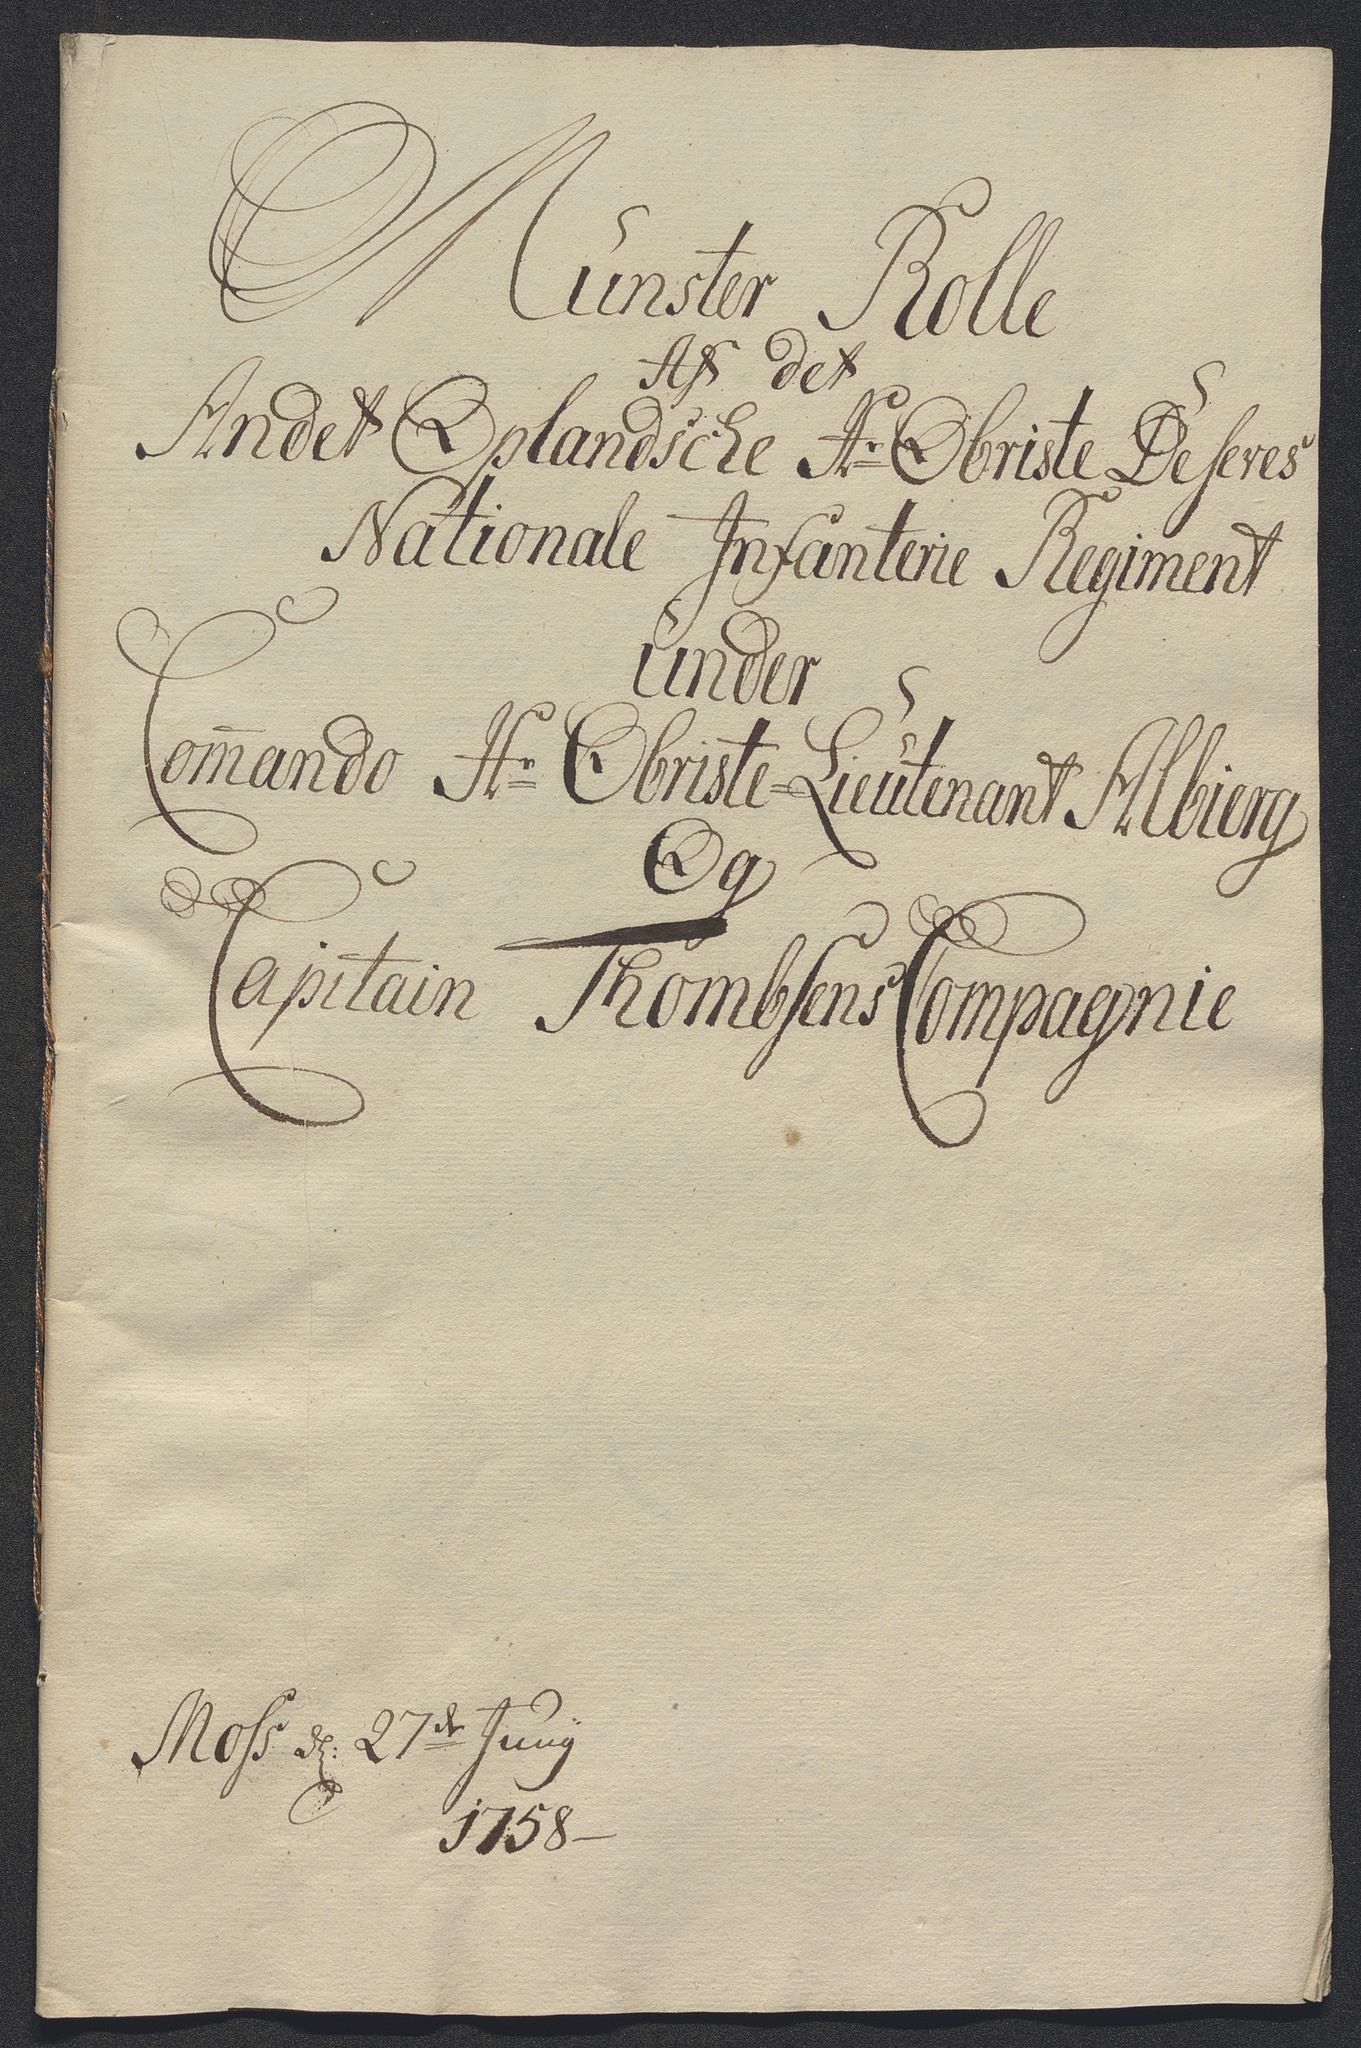 Münster Rolle
Af det
Andet Oplandsche Hr. Obriste Deseres
Nationale Infanterie Regiment
ünder
Com̄ando Hr. Obriste-Lieütenant Albierg
Og
Capitain Thombsens Compagnie
Moss d. 27de Junÿ
1758-